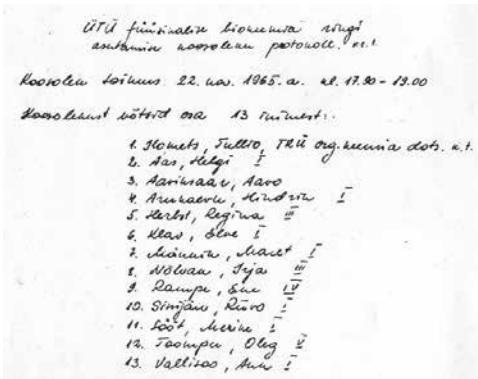 ÜTÜ füüsikalise biokeemia ringi
asutamise koosoleku protokoll. nr. 1.
Koosolek toimus 22. nov. 1965.a. kl. 17.30 - 19.00
Koosolekust võtsid osa 13 inimest:
1. Tullio, TRÜ org. keemia dots. k.t.
2. Aas, Helgi I
3. Aaviksaar, Aavo
4. Hindrik I
5. Herbst, Regina III
6. Klav, Eeve I
7. Männik, Maret I
8. Nõlvak, Irja III
9. Rampe, Ene IV
10. Sinijärv, Riivo I
11. Sööt, I
12. Toompuu, Oleg V
13. Vallisoo, Ann I